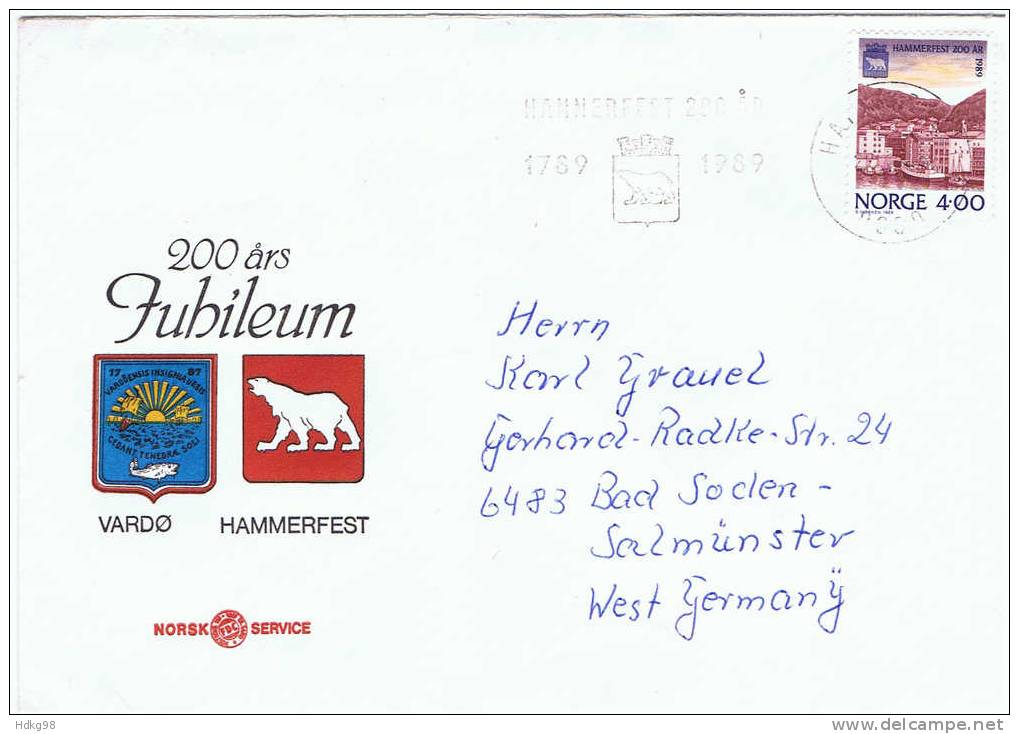 HAMMERFEST 200 ÅR
1989
NORGE 4·00
HAMMERFEST 200 ÅR
1789 1989
200 års
Jubileum
17 87
VARDÖENSIS INSIGNIA URBIS
CEDANT TENEBRÆ SOLI
VARDØ HAMMERFEST
NORSK FDC SERVICE
Herrn
Karl Grauel
Gerhard-Radke-Str. 24
6483 Bad Soden-
Salmünster
West Germany
Hdkg98
delcampe.net